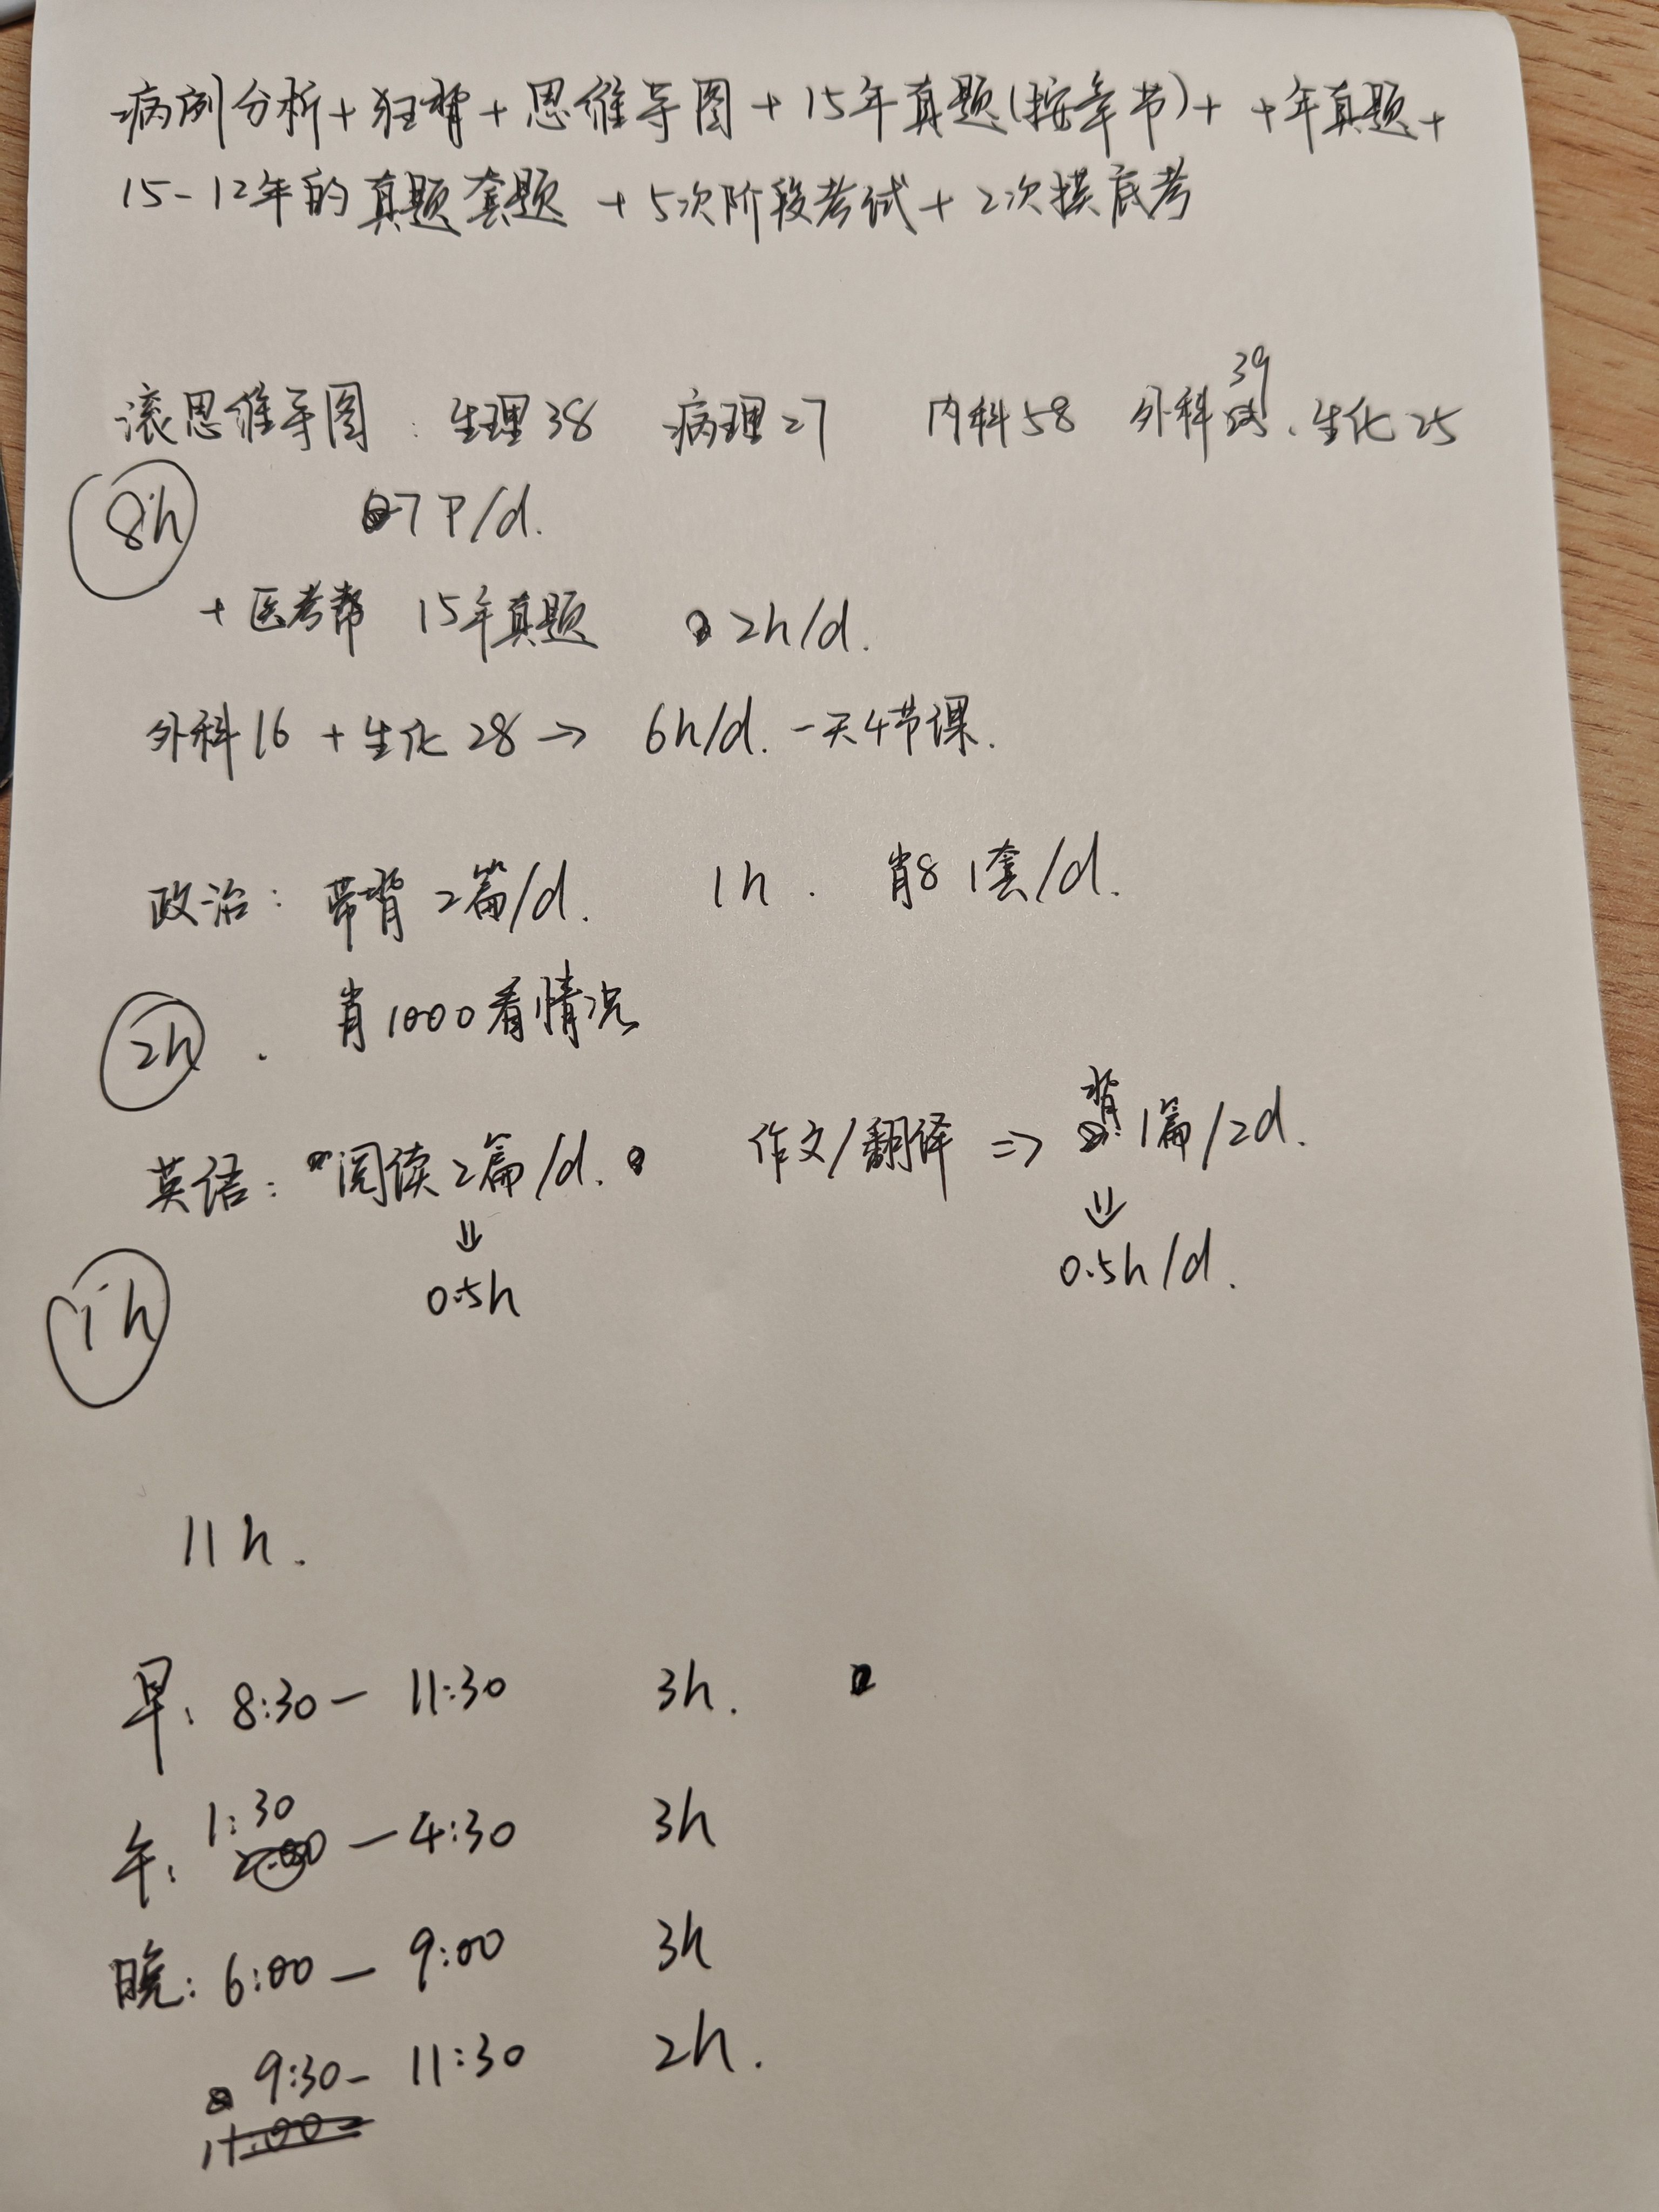 病例分析+狂背+思维导图+15年真题(按章节)+ +年真题+
15-12年的真题套题 +5次阶段考试+2次摸底考
39
滚思维导图: 生理38 病理27 内科58 外科 、生化25
8h 7P/d.
+医考帮 15年真题 2h/d.
外科16 +生化28→ 6h/d. 一天4节课.
政治: 带背2篇/d. 1h. 肖8 1套/d.
肖1000看情况
2h.
英语: 阅读2篇/d. 作文/翻译 ⇒ 背1篇/2d.
⇓ ⇓
0.5h 0.5h/d.
1h
11h.
早: 8:30— 11:30 3h.
午: 1:30 —4:30 3h
晚: 6:00— 9:00 3h
9:30- 11:30 2h.
11:00-